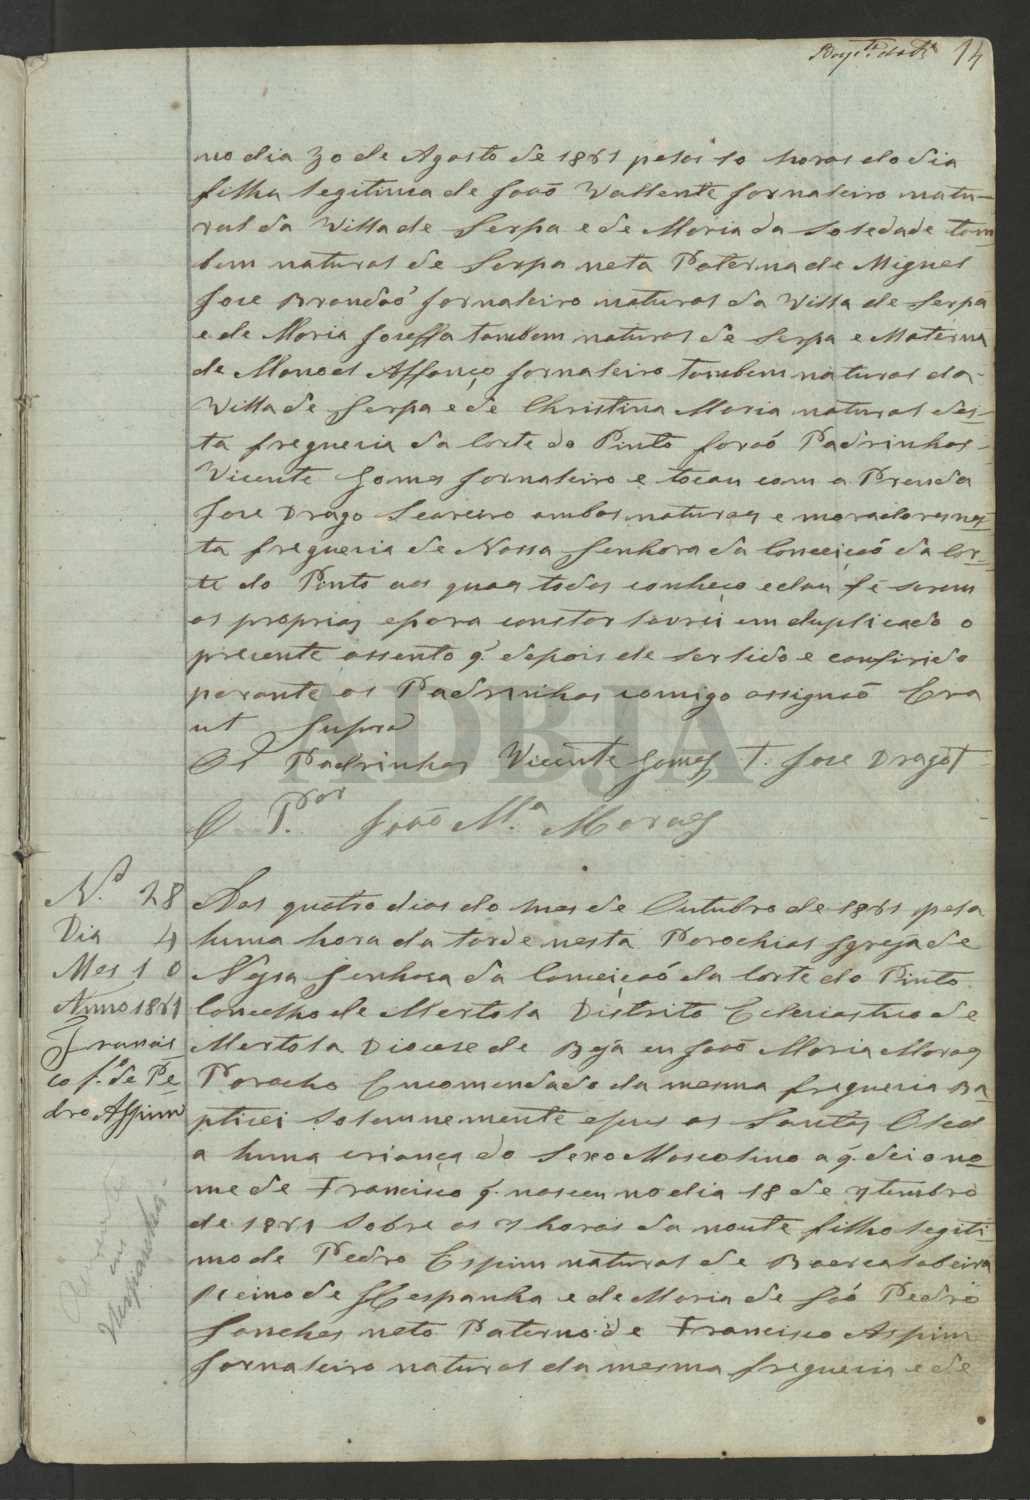 14
no dia 30 de Agosto de 1861 pelas 10 horas do dia
filha legitima de Joaõ Vallente Jornaleiro natu-
ral da Villa de Serpa e de Maria da Soledade tam
bem natural de Serpa neta Paterna de Miguel
Jose Brandaõ Jornaleiro natural da Villa de Serpa
e de Maria Joseffa tambem natural de Serpa e Materna
de Manoel Affonço Jornaleiro tambem natural da
Villa de Serpa e de Christina Maria natural des-
ta freguecia da Corte do Pinto foraõ Padrinhos
Vicente Gomes Jornaleiro e tocou com a Prenda
Jose Drago Seareiro ambos naturaes e moradores nes
ta freguecia de Nossa Senhora da Conceiçaõ da Cor-
te do Pinto aos quaes todos conheço e dou fé serem
os proprios e para constar lavrei em duplicado o
precente assento q. depois de ser lido e conferido
perante os Padrinhos comigo assignaõ Era
ut Supra
Os Padrinhos Vicente Gomes T. Jose Drago T
O P.or Joaõ M.a Moraes
N.o 28
Dia 4
Mes 10
Anno 1861
Francis
co f.o de Pe
dro Aspim
Aos quatro dias do mes de Outubro de 1861 pela
huma hora da tarde nesta Parochial Igreja de
Nossa Senhora da Conceiçaõ da Corte do Pinto
Concelho de Mertola Distrito Eclesiastico de
Mertola Diocese de Beja eu Joaõ Maria Moraes
Parocho Encomendado da mesma freguecia Ba
pticei Solemnemente e pus os Santos Oleos
a huma criança do Sexo Mascolino a q. dei o no
me de Francisco q. nasceu no dia 18 de 7tembro
de 1861 Sobre as 7 horas da noute filho legiti
mo de Pedro Espim natural de
Reino de Hespanha e de Maria de Saõ Pedro
Sanches neto Paterno de Francisco Aspim
Jornaleiro natural da mesma freguecia e de
ADBJA